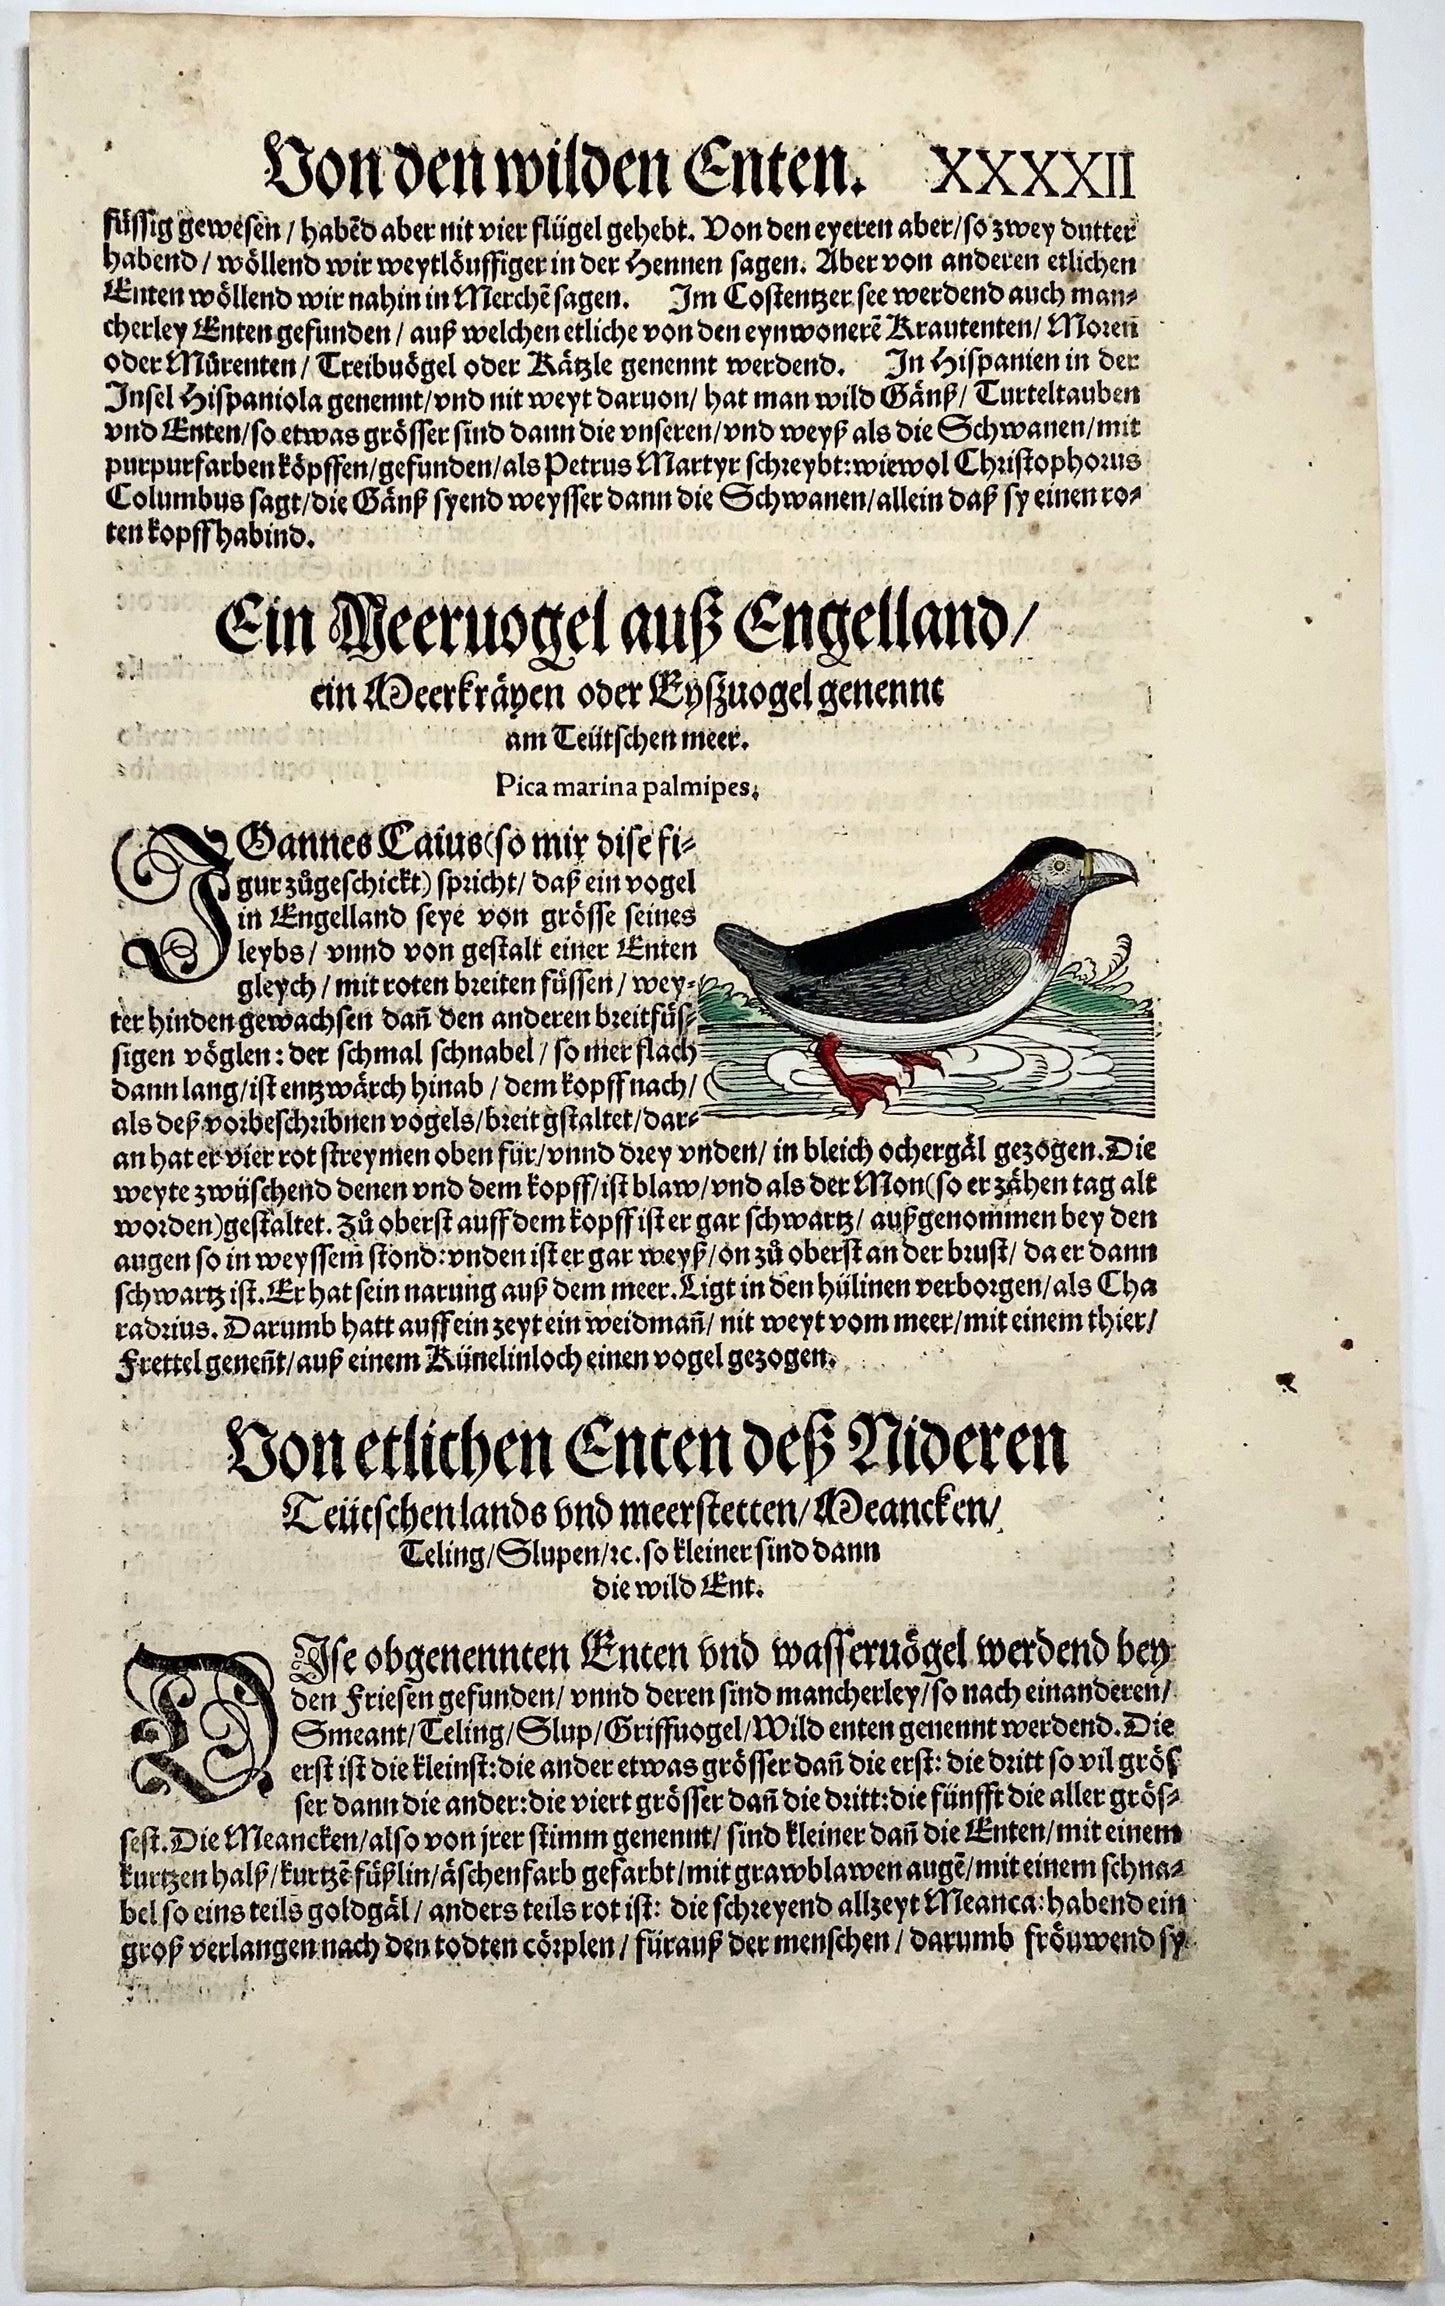 Von den wilden Enten. XXXXII
füssig gewesen / habẽd aber nit vier flügel gehebt. Von den eyeren aber/so zwey dutter
habend / wöllend wir weytlöuffiger in der Hennen sagen. Aber von anderen etlichen
Enten wöllend wir nahin in Merchẽ sagen. Im Costentzer see werdend auch man⸗
cherley Enten gefunden / auß welchen etliche von den eynwonerẽ Krautenten/ Moreñ
oder Můrenten / Treibuögel oder Kätzle genennt werdend. In Hispanien in der
Insel Hispaniola genennt/vnd nit weyt daruon/ hat man wild Gänß/ Turteltauben
vnd Enten/so etwas grösser sind dann die vnseren/vnd weyß als die Schwanen/mit
purpurfarben köpffen/gefunden/als Petrus Martyr schreybt:wiewol Christophorus
Columbus sagt/die Gänß syend weysser dann die Schwanen/allein daß sy einen ro⸗
ten kopff habind.
Ein Meeruogel auß Engelland/
ein Meerkräyen oder Eyßuogel genennt
am Teütschen meer.
Pica marina palmipes.
JOannes Caius(so mir dise fi⸗
gur zůgeschickt) spricht/ daß ein vogel
in Engelland seye von grösse seines
leybs/ vnnd von gestalt einer Enten
gleych / mit roten breiten füssen / wey⸗
ter hinden gewachsen dañ den anderen breitfüs⸗
sigen vöglen: der schmal schnabel / so mer flach
dann lang/ist entzwärch hinab / dem kopff nach/
als deß vorbeschribnen vogels/breit gstaltet/dar⸗
an hat er vier rot streymen oben für/vnnd drey vnden/ in bleich ochergäl gezogen. Die
weyte zwüschend denen vnd dem kopff/ist blaw/vnd als der Mon(so er zähen tag alt
worden)gestaltet. Zů oberst auff dem kopff ist er gar schwartz/ außgenommen bey den
augen so in weyssem stond:vnden ist er gar weyß/on zů oberst an der brust/ da er dann
schwartz ist. Er hat sein narung auß dem meer. Ligt in den hülinen verborgen/als Cha
radrius. Darumb hatt auff ein zeyt ein weidmañ/ nit weyt vom meer/mit einem thier/
Frettel geneñt/auß einem Künelinloch einen vogel gezogen.
Von etlichen Enten deß Nideren
Teütschen lands vnd meerstetten/Meancken/
Teling/Slupen/ꝛc. so kleiner sind dann
die wild Ent.
DJse obgenennten Enten vnd wasseruögel werdend bey
den Friesen gefunden/ vnnd deren sind mancherley/so nach einanderen/
Smeant/Teling/Slup/Griffuogel/Wild enten genennt werdend. Die
erst ist die kleinst:die ander etwas grösser dañ die erst: die dritt so vil grös
ser dann die ander:die viert grösser dañ die dritt:die fünfft die aller grös⸗
sest. Die Meancken/also von jrer stimm genennt/ sind kleiner dañ die Enten/mit einem
kurtzen halß/kurtzẽ füßlin/äschenfarb gefarbt/mit grawblawen augẽ/mit einem schna⸗
bel so eins teils goldgäl/ anders teils rot ist: die schreyend allzeyt Meanca:habend ein
groß verlangen nach den todten cörplen / fürauß der menschen / darumb fröuwend sy